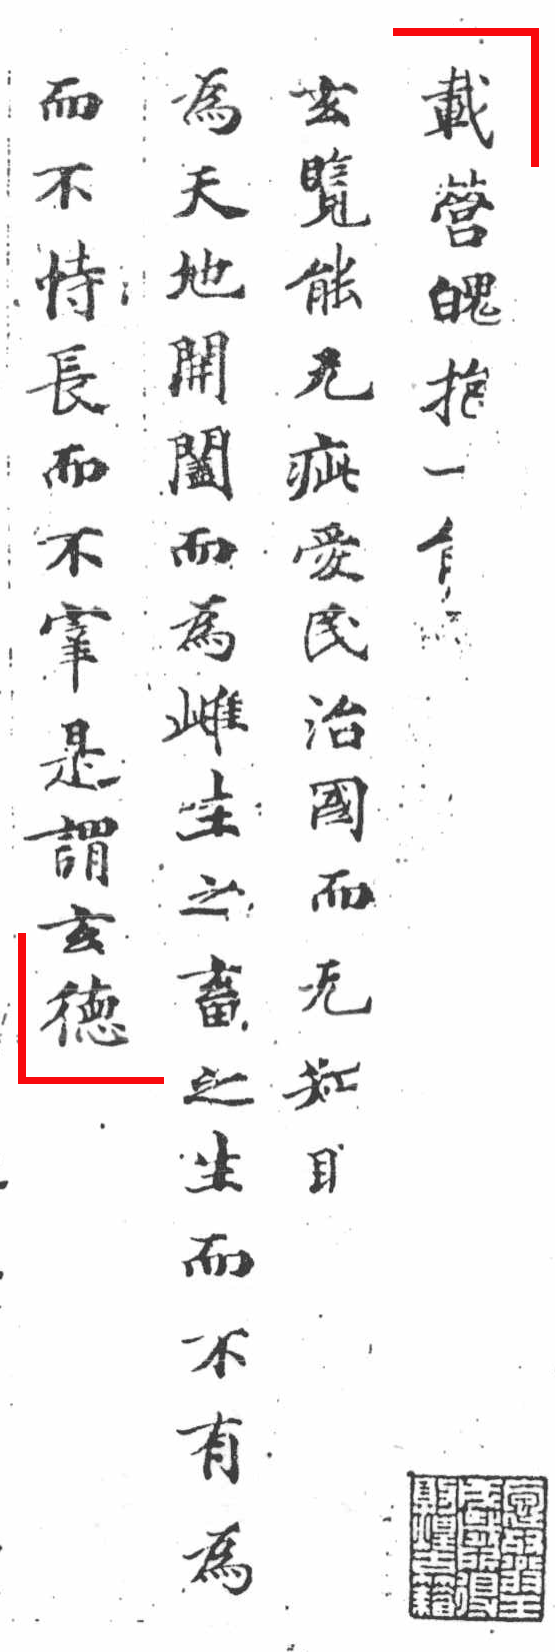 載營魄抱一
玄覽能无疵愛民治國而无知
為天地開闔而為雌生之畜之生而不有為
而不恃長而不宰是謂玄德
敦煌古籍